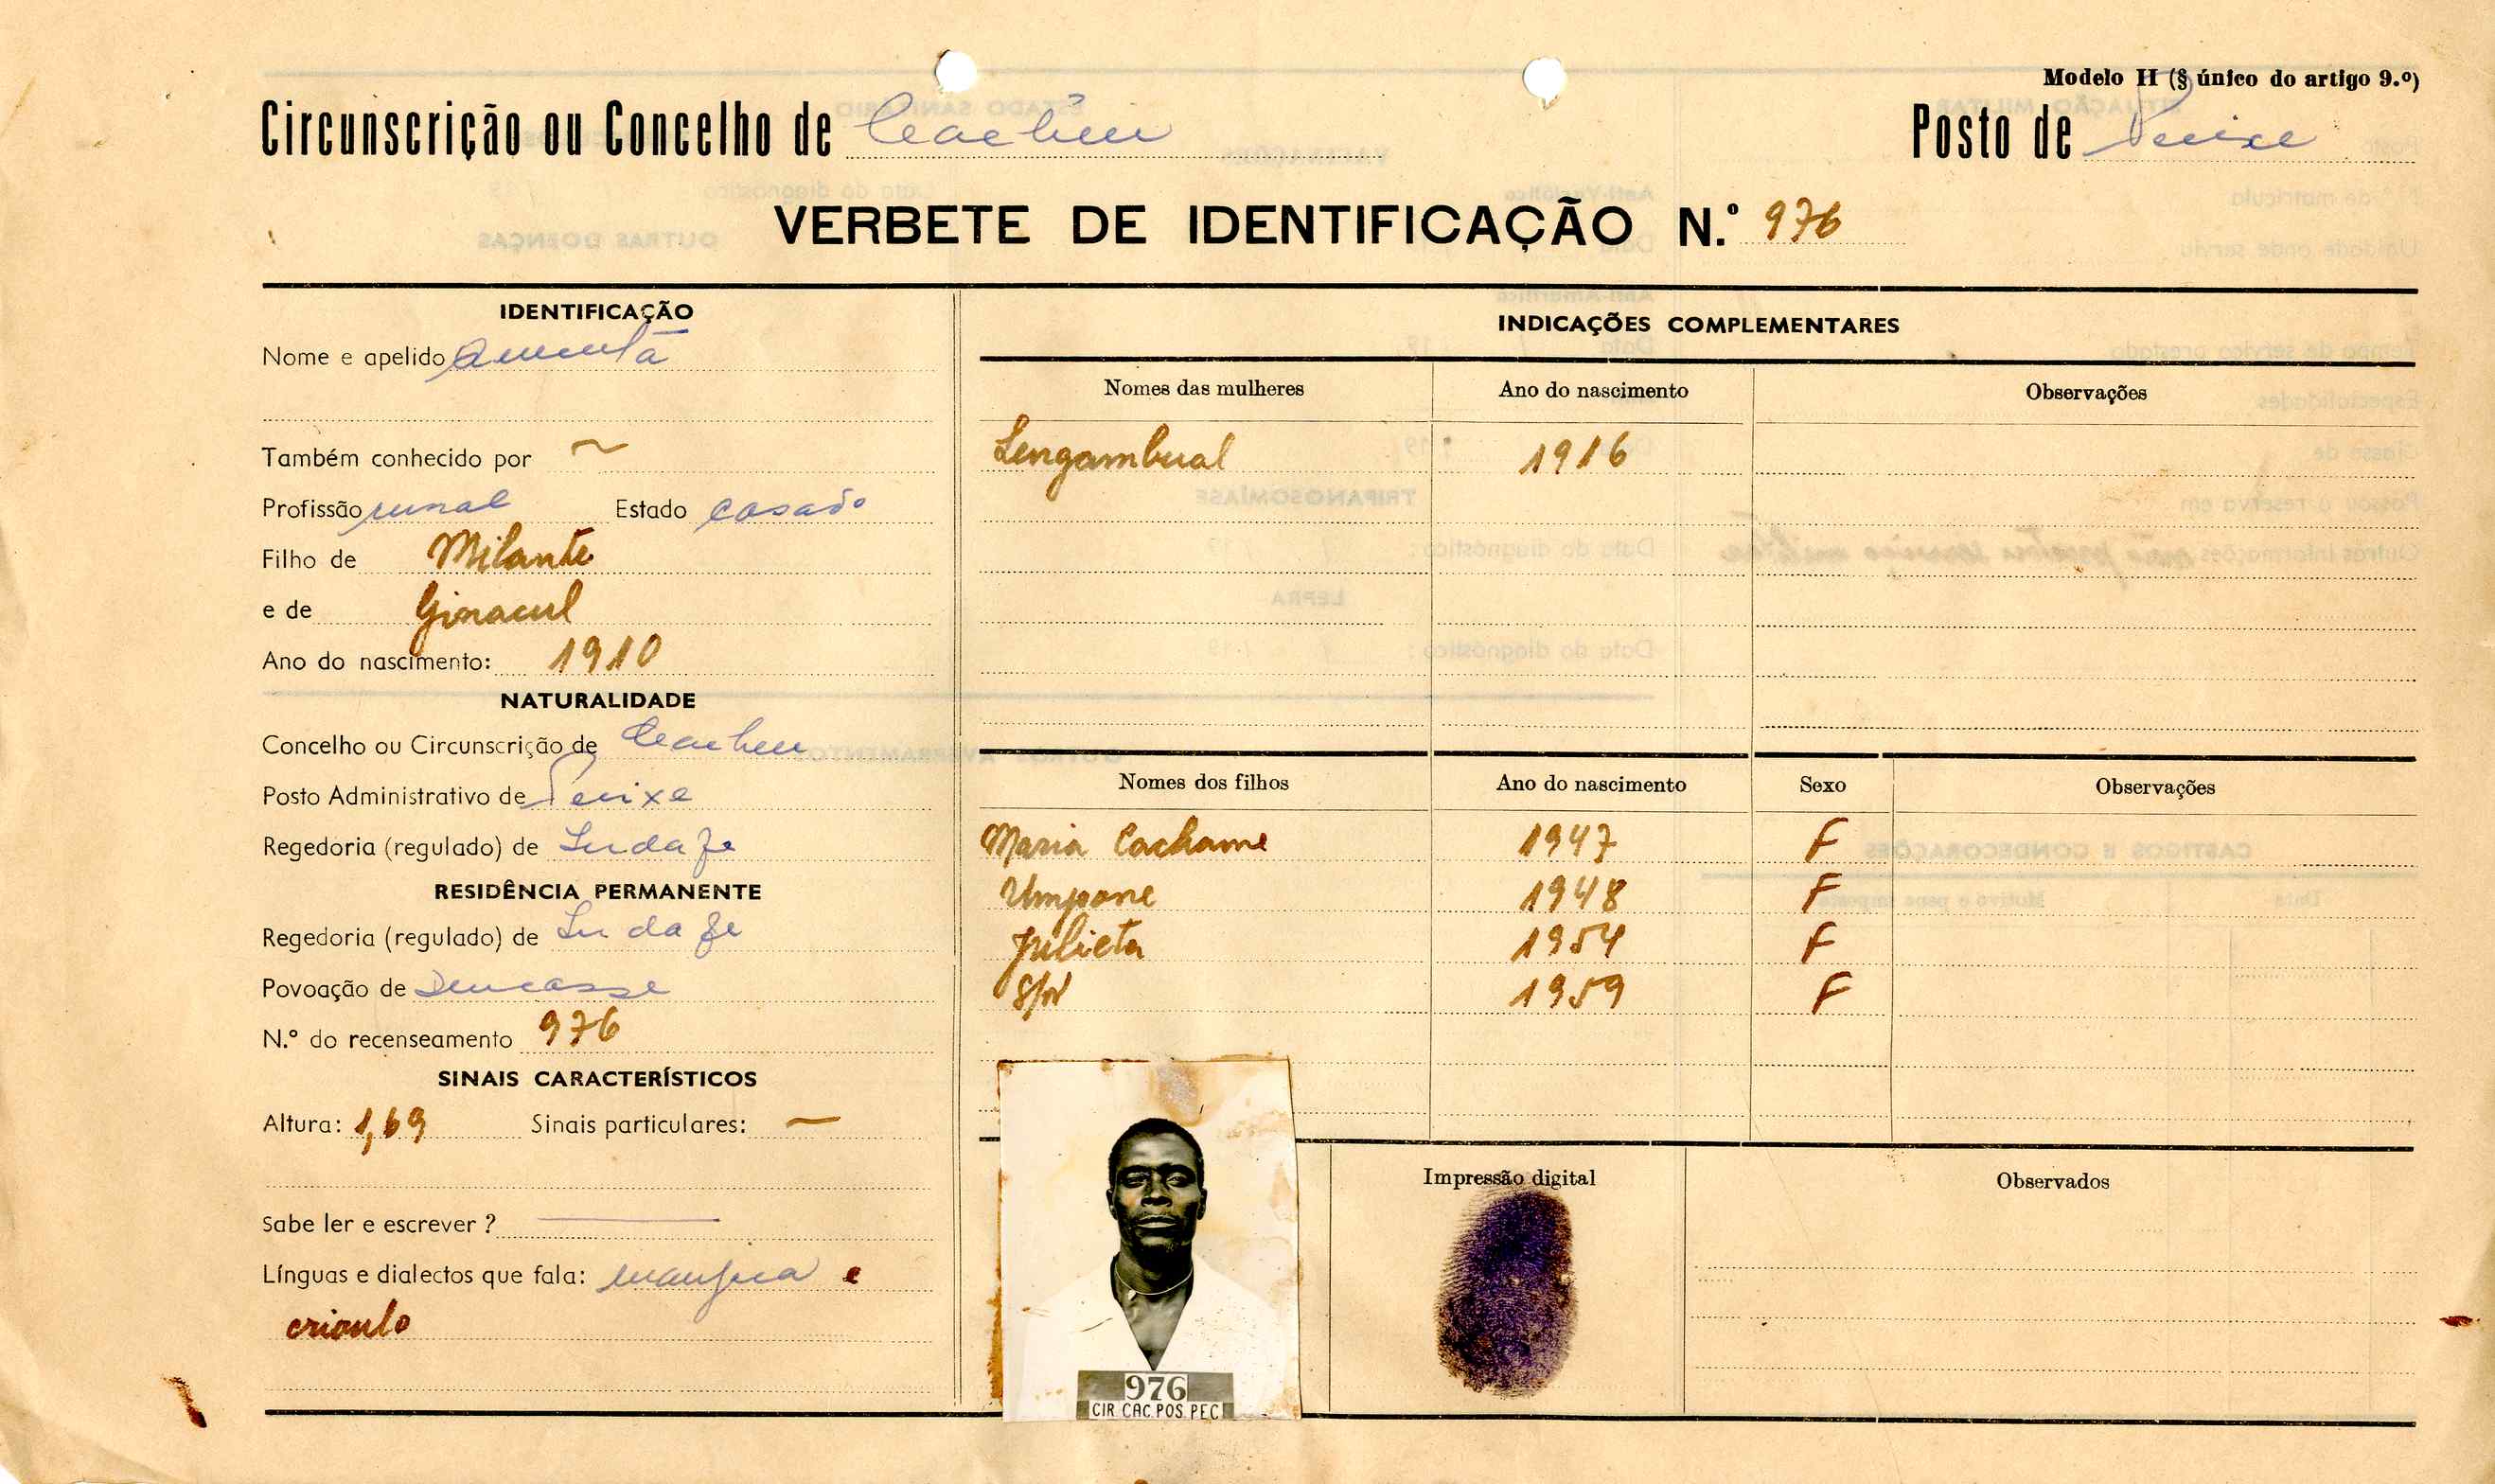 Modelo H (§ único do artigo 9.º)
Circunscrição ou Concelho de Cacheu Posto de Pecixe
VERBETE DE IDENTIFICAÇÃO N.º 976
IDENTIFICAÇÃO
Nome e apelido
Também conhecido por ~
Profissão rural Estado casado
Filho de Milante
e de Ginacul
Ano do nascimento: 1910
NATURALIDADE
Concelho ou Circunscrição de Cacheu
Posto Administrativo de Pecixe
Regedoria (regulado) de
RESIDÊNCIA PERMANENTE
Regedoria (regulado) de
Povoação de
N.º do recenseamento 976
SINAIS CARACTERÍSTICOS
Altura: 1,69 Sinais particulares: —
Sabe ler e escrever ? —
Línguas e dialectos que fala: manjaca e
crioulo
INDICAÇÕES COMPLEMENTARES
Nomes das mulheres Ano do nascimento Observações
Lengambual 1916
Nomes dos filhos Ano do nascimento Sexo Observações
Maria Cachame 1947 F
Umpane 1948 F
Julieta 1954 F
S/N 1959 F
Impressão digital Observados
976
CIR CAC POS PEC